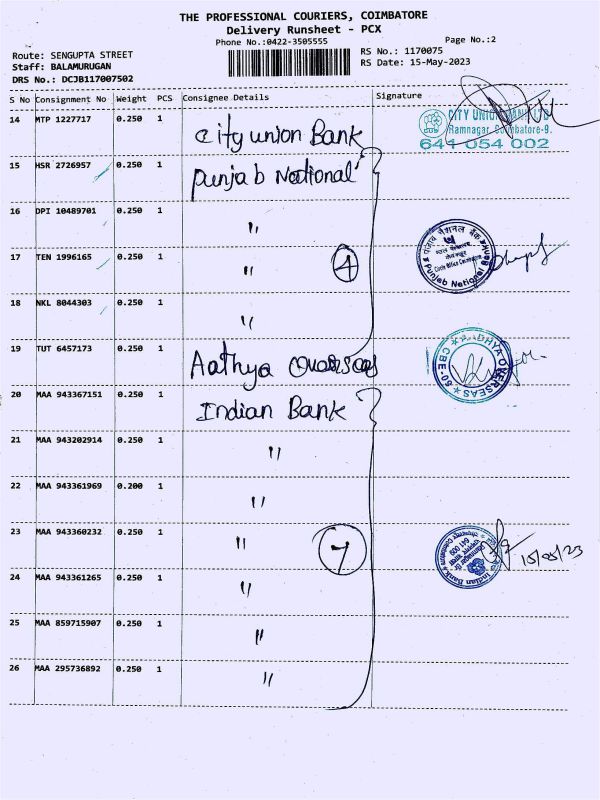 THE PROFESSIONAL COURIERS, COIMBATORE
Delivery Runsheet - PCX
Phone No.:0422-3505555
Page No.:2
Route: SENGUPTA STREET
RS No.: 1170075
Staff: BALAMURUGAN
RS Date: 15-May-2023
DRS No.: DCJB117007502
S No Consignment No Weight PCS Consignee Details Signature
14 MTP 1227717 0.250 1 City union Bank
CITY UNION BANK LTD
Ramnagar, Coimbatore-9.
641 054 002
15 HSR 2726957 0.250 1 Punjab National
16 DPI 10489701 0.250 1 "
17 TEN 1996165 0.250 1 " 4
पंजाब नैशनल बैंक
Punjab National Bank
18 NKL 8044303 0.250 1 "
19 TUT 6457173 0.250 1 Aathya Overseas
AADHYA OVERSEAS
CBE-09
20 MAA 943367151 0.250 1 Indian Bank
21 MAA 943202914 0.250 1 "
22 MAA 943361969 0.200 1 "
23 MAA 943360232 0.250 1 " 7
Indian Bank
641 009
15/05/23
24 MAA 943361265 0.250 1 "
25 MAA 859715907 0.250 1 "
26 MAA 295736892 0.250 1 "